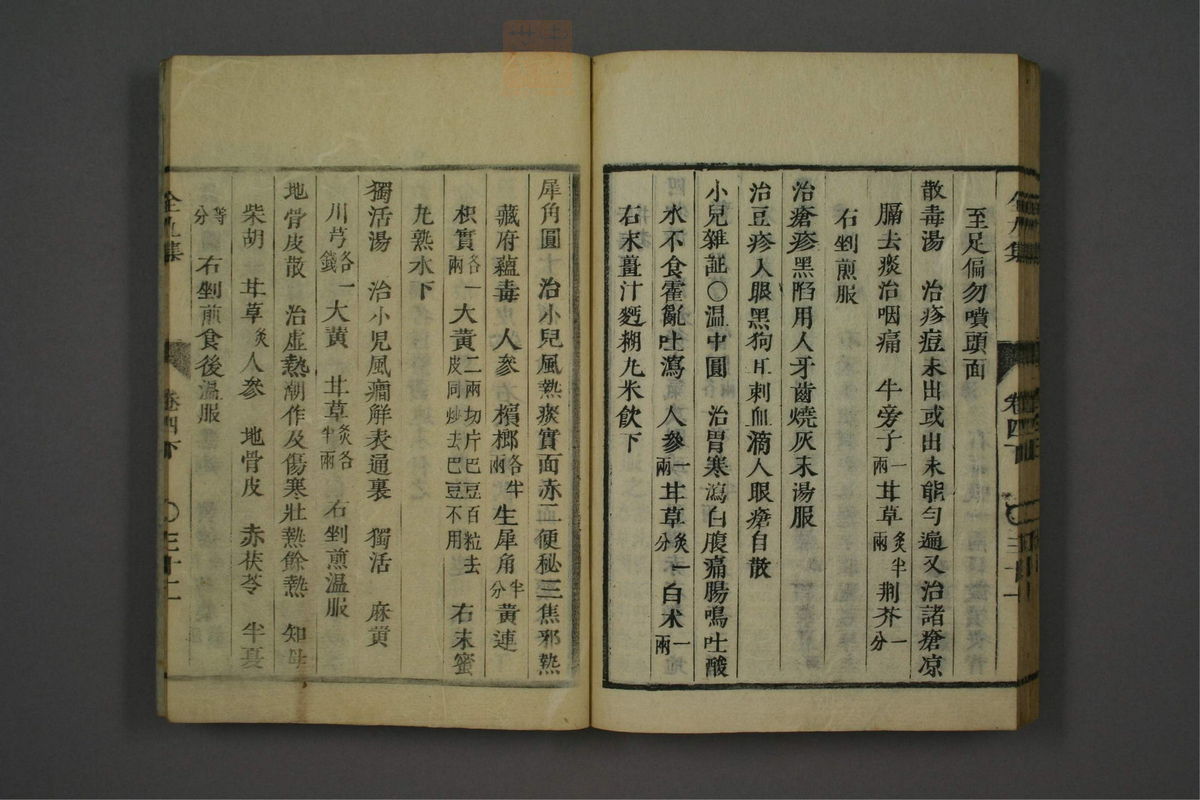 至足偏勿噴頭面
散毒湯　治疹痘未出或出未能勻遍又治諸瘡凉
膈去痰治咽痛　牛旁子一兩 甘草炙半兩 荆芥一分
右剉煎服
治瘡疹黑陷用人牙齒燒灰末湯服
治豆疹入眼黑狗耳刺血滴人眼瘡自散
小兒雜証〇温中圓　治胃寒瀉白腹痛腸鳴吐酸
水不食霍亂吐瀉　人參一兩 甘草炙一分 白术一兩
右末薑汁麪糊九米飲下
卷四下
犀角圓　治小兒風熱痰實面赤二便秘三焦邪熱
藏府蘊毒　人參　檳榔各半兩 生犀角半分 黄連
枳實各一兩 大黄二兩切片巴豆百粒去皮同炒去巴豆不用　右末蜜
九熟水下
獨活湯　治小児風癎解表通裏　獨活　麻黄
川芎各一錢 大黄　甘草炙各半兩　右剉煎温服
地骨皮散　治虚熱潮作及傷寒壯熱餘熱　知母
柴胡　甘草炙 人參　地骨皮　赤茯苓　半夏
等分　右剉煎食後温服
卷四下　〇三十二